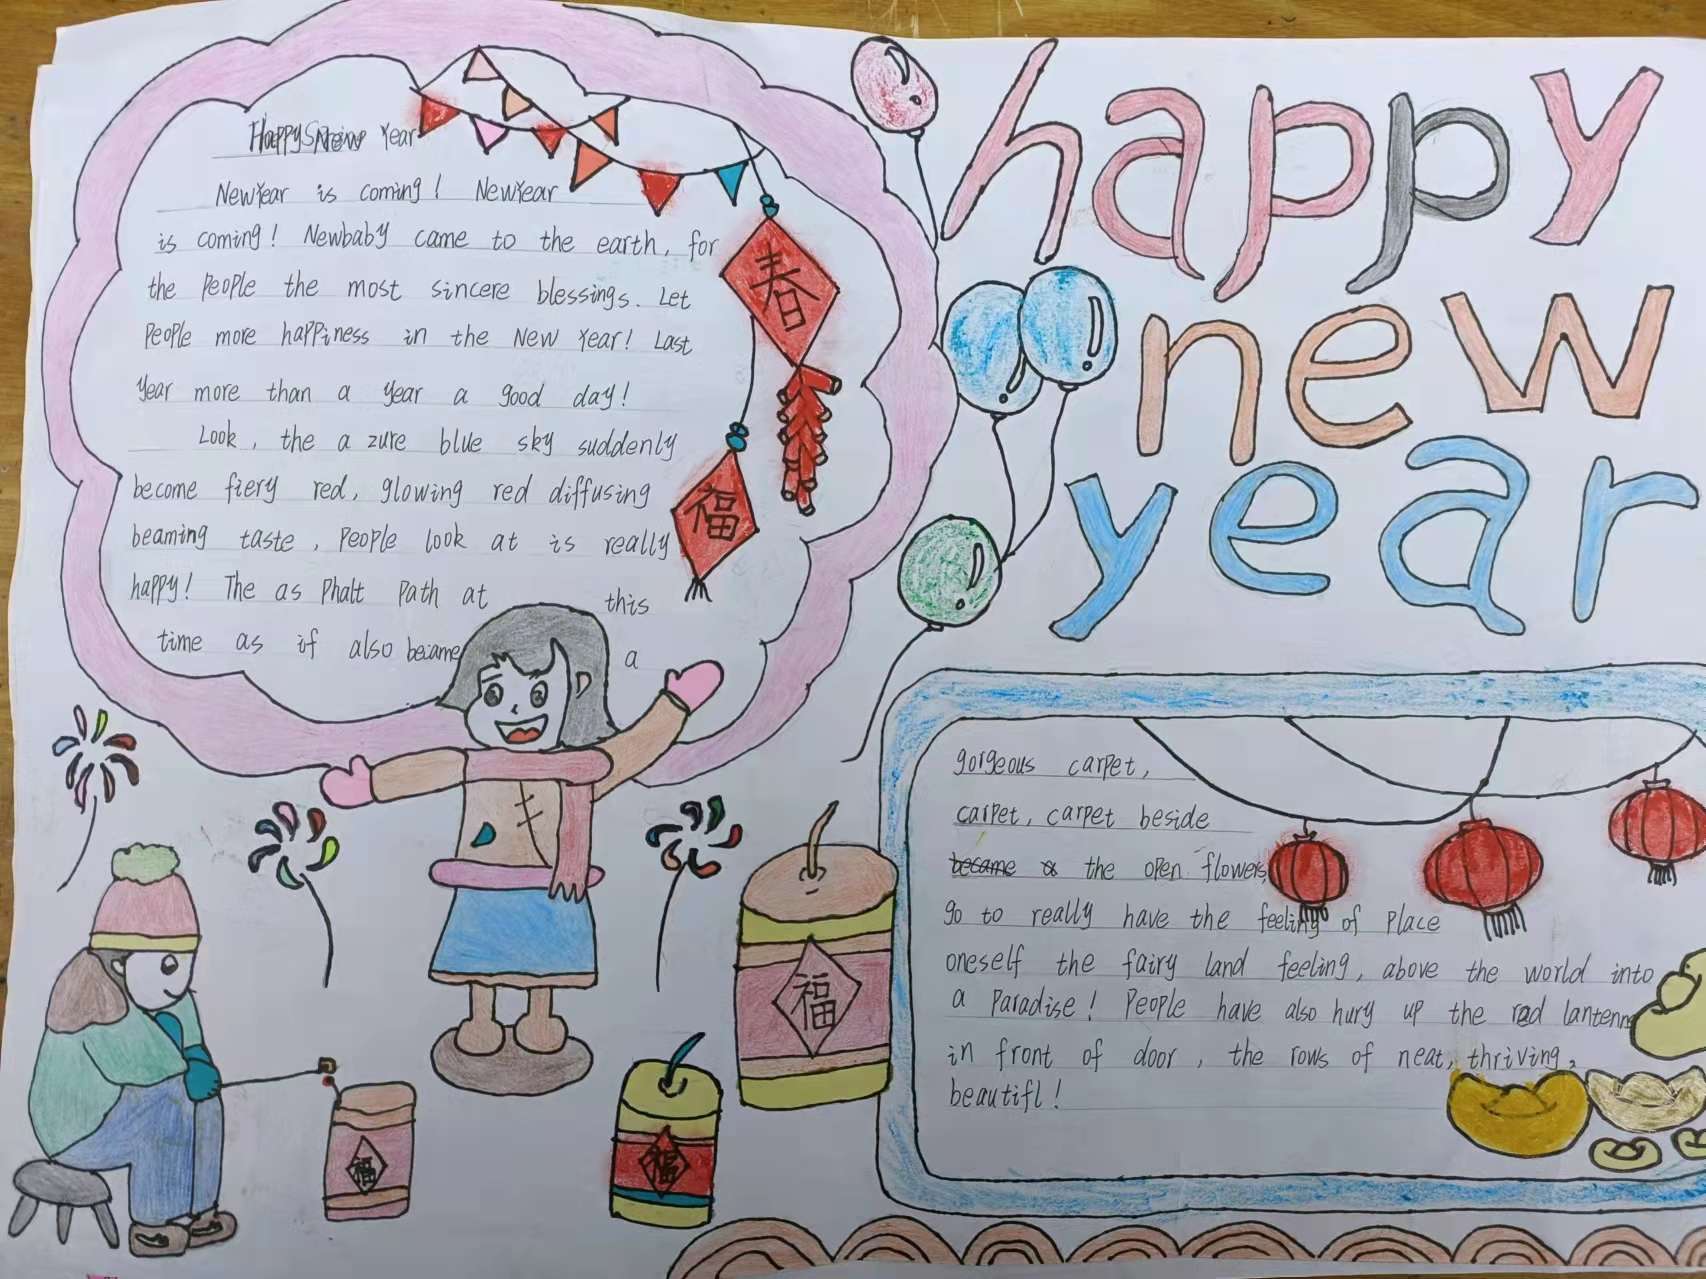 Happy New Year
NewYear is coming! NewYear
is coming! Newbaby came to the earth, for
the people the most sincere blessings. Let
people more happiness in the New Year! Last
year more than a year a good day!
Look, the a zure blue sky suddenly
become fiery red, glowing red diffusing
beaming taste, people look at is really
happy! The as phalt path at this
time as if also became a
春
福
happy
new
year
gorgeous carpet,
carpet, carpet beside
became a the open flowers,
go to really have the feeling of place
oneself the fairy land feeling, above the world into
a paradise! People have also hury up the red lantenn
in front of door, the rows of neat, thriving,
beautifl!
福
福
福